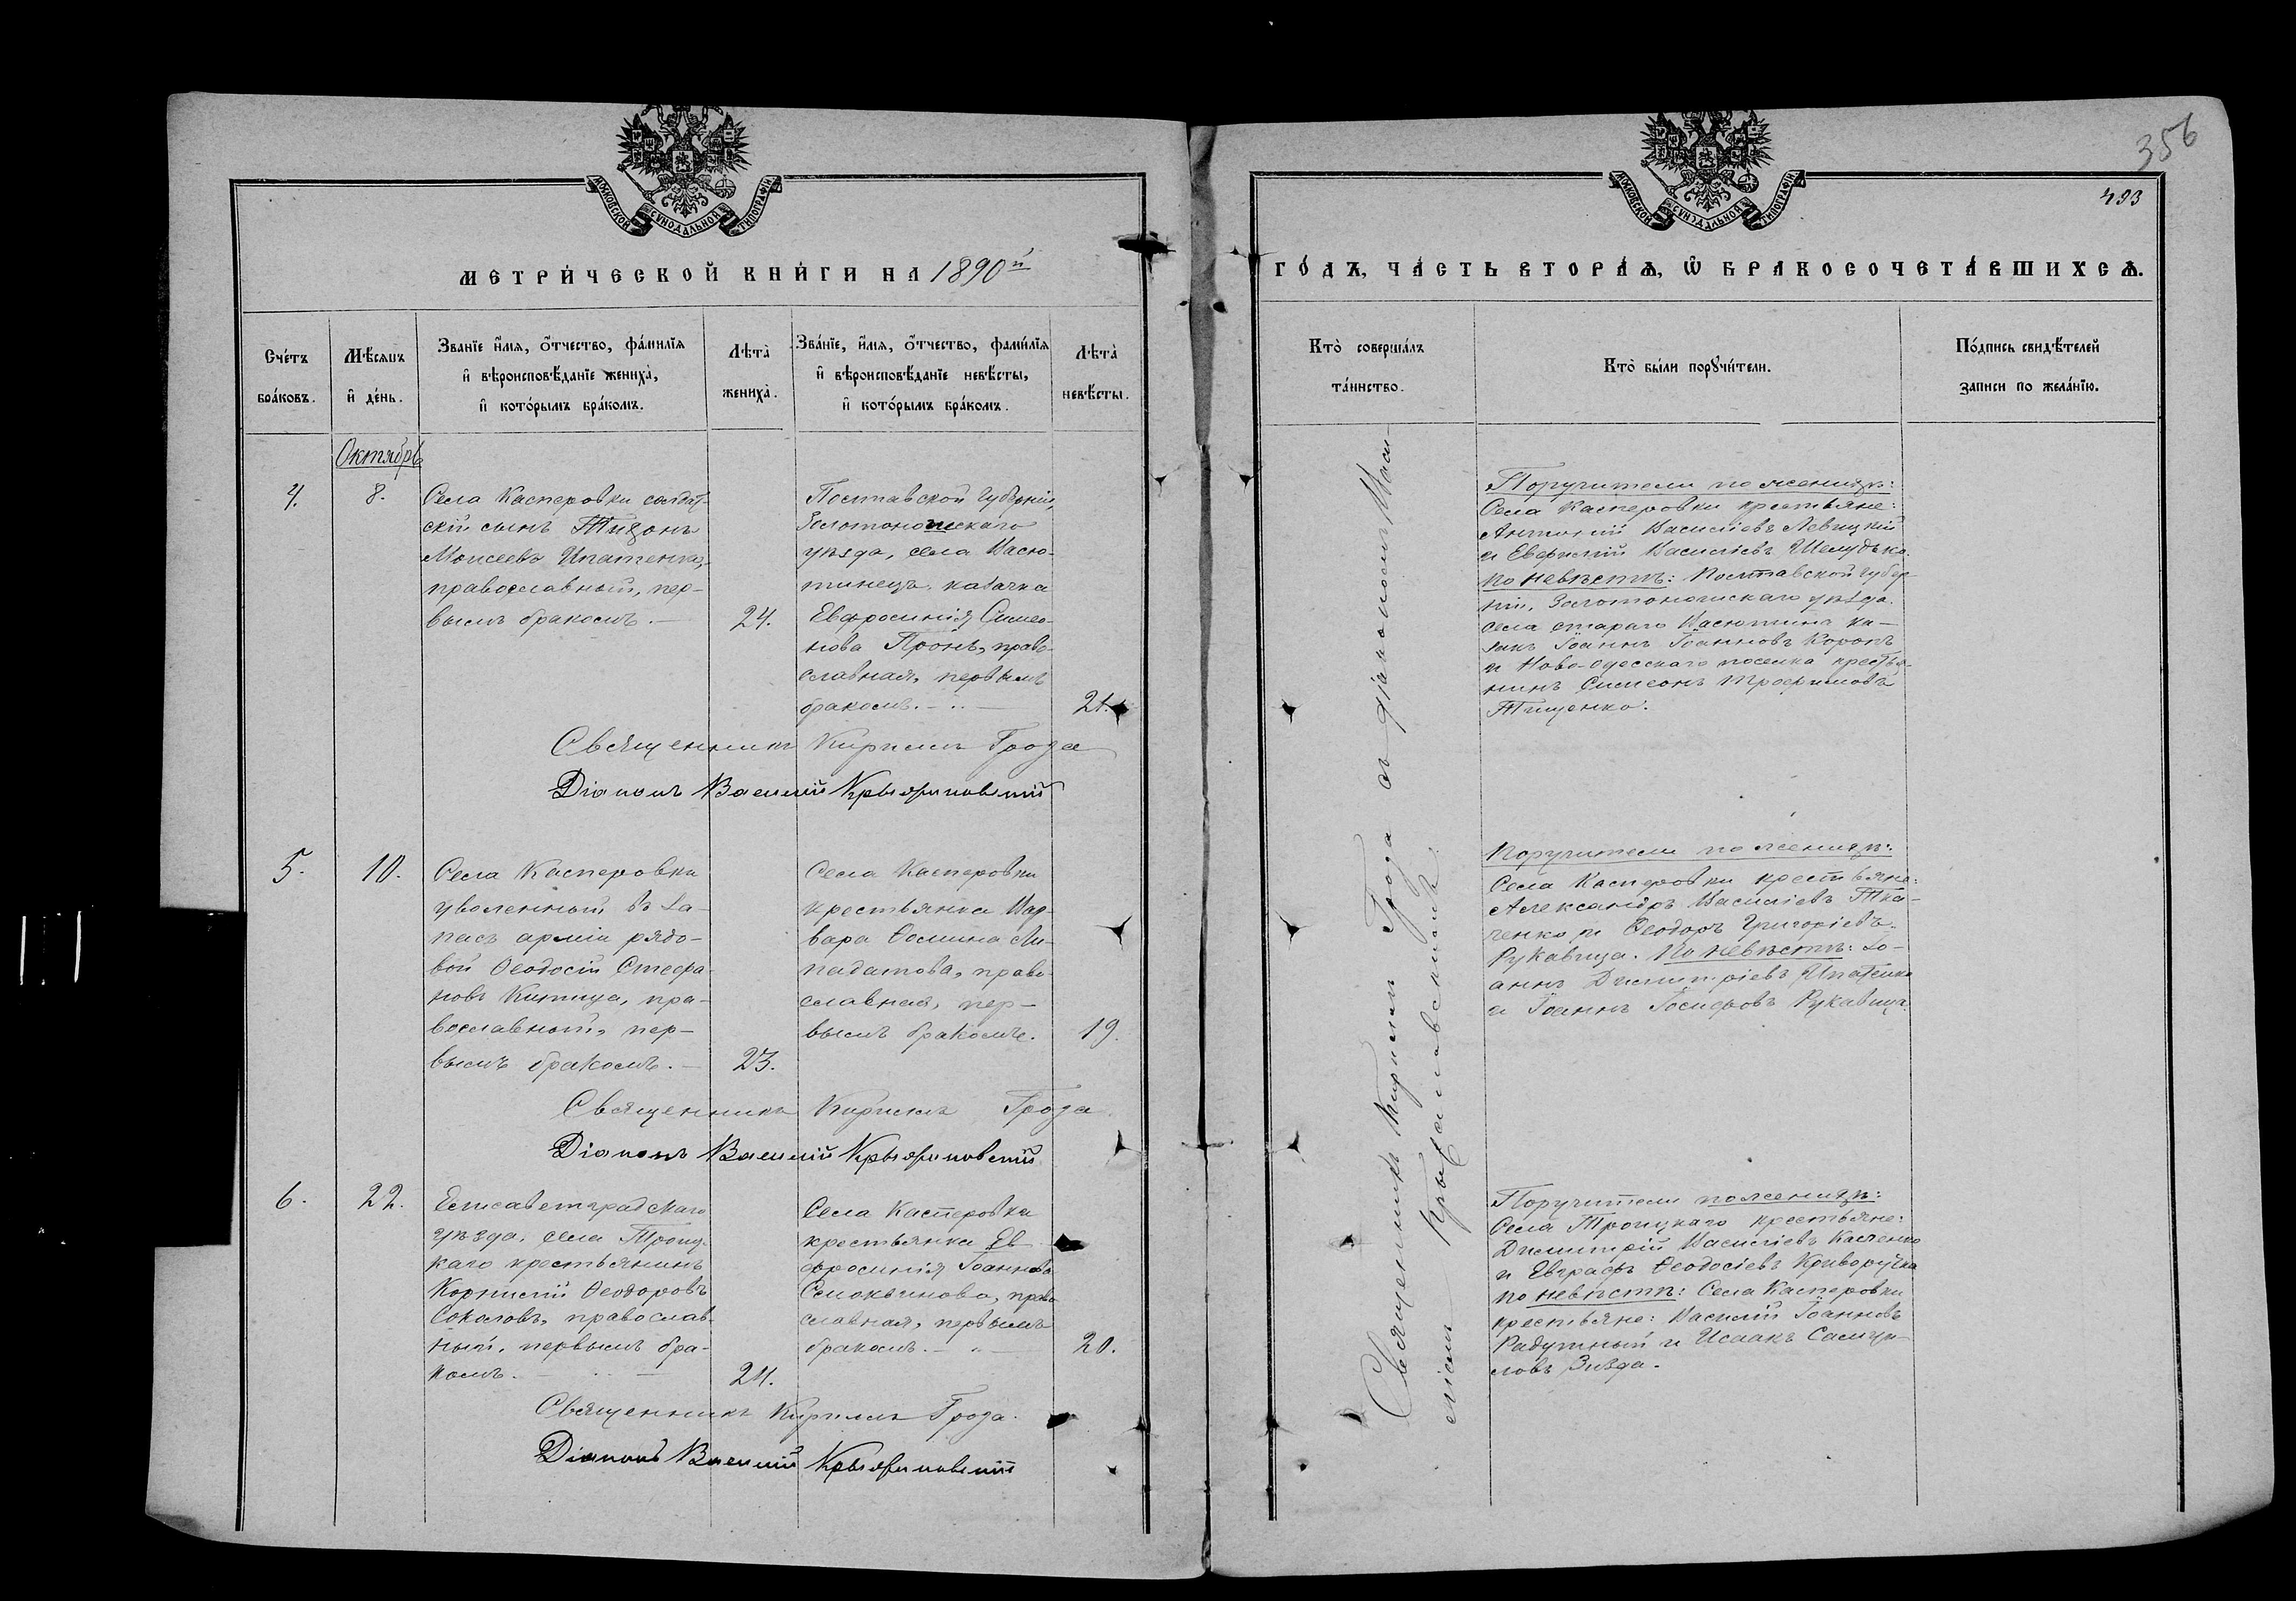 МОСКОВСКОЙ СѴНОДАЛЬНОЙ ТИПОГРАФІИ
МЕТРИ́ЧЕСКОЙ КНИ́ГИ НА 1890й
Сче́тъ бра́ковъ.
Мѣ́сяцъ и҆ де́нь.
Званїе и҆́мя, о҆́тчество, фамилїя
и҆ вѣроисповѣ́данїе жениха̀,
и҆ кото́рымъ бра́комъ.
Лѣта̀ жениха̀.
Зва́нїе, и҆́мя, о҆́тчество, фами́лїя
и҆ вѣроисповѣ́данїе невѣ́сты,
и҆ кото́рымъ бра́комъ.
Лѣта̀ невѣ́сты.
Октябрь
4.
8.
Села Касперовки солдат-
скій сынъ Тихонъ
Моисеевъ Ипатенко,
православный, пер-
вымъ бракомъ.
24.
Полтавской Губерніи,
Золотоношскаго
уѣзда, села Васю-
тинецъ казачка
Евфросинія Симео-
нова Пронь, право-
славная, первымъ
бракомъ.
21.
Священникъ Кириллъ Грода
Діаконъ Василій
5.
10.
Села Касперовки
уволенный въ за-
пасъ арміи рядо-
вой Ѳеодосій Стефа-
новъ Китица, пра-
вославный, пер-
вымъ бракомъ.
23.
Села Касперовки
крестьянка Вар-
вара Ѳомина Ли-
падатова, право-
славная, пер-
вымъ бракомъ.
19.
Священникъ Кириллъ Грода
Діаконъ Василій
6.
22.
Елисаветградскаго
уѣзда, села Троиц-
каго крестьянинъ
Корнилій Ѳеодоровъ
Соколовъ, православ-
ный, первымъ бра-
комъ.
24.
Села Касперовки
крестьянка Ев-
фросинія Іоаннова
право-
славная, первымъ
бракомъ.
20.
Священникъ Кириллъ Грода.
Діаконъ Василій
356
493
МОСКОВСКОЙ СѴНОДАЛЬНОЙ ТИПОГРАФІИ
ГО́ДЪ, ЧА́СТЬ ВТОРА́Ѧ, Ѡ҆ БРАКОСОЧЕТА́ВШИХСѦ.
Кто̀ соверша́лъ та́инство.
Кто̀ бы́ли порꙋчи́тели.
По́дпись свидѣ́телей
записи по жела́нїю.
Священникъ Кириллъ Грода и діакономъ Васи-
ліемъ
Поручители по женихѣ:
Села Касперовки крестьяне:
Антоній Василіевъ Левицкій
и Евфимій Василіевъ Шелудько.
По невѣстѣ: Полтавской Губер-
ніи, Золотоношскаго уѣзда
села стараго Васютина ка-
закъ Іоаннъ Іоанновъ Коропъ
и Ново-Одесскаго поселка крестья-
нинъ Симеонъ Трофимовъ
Тищенко.
Поручители по женихѣ:
Села Касперовки крестьяне:
Александръ Василіевъ Тка-
ченко и Ѳеодоръ Григоріевъ
Рукавица. По невѣстѣ: Іо-
аннъ Димитріевъ Ипатенко
и Іоаннъ Іосифовъ Рукавица.
Поручители по женихѣ:
Села Троицкаго крестьяне:
Димитрій Василіевъ Касьенко
и Евграфъ Ѳеодосіевъ Криворучка
по невѣстѣ: Села Касперовки
крестьяне: Василій Іоанновъ
Радутный и Исаакъ Самуи-
ловъ Звѣзда.